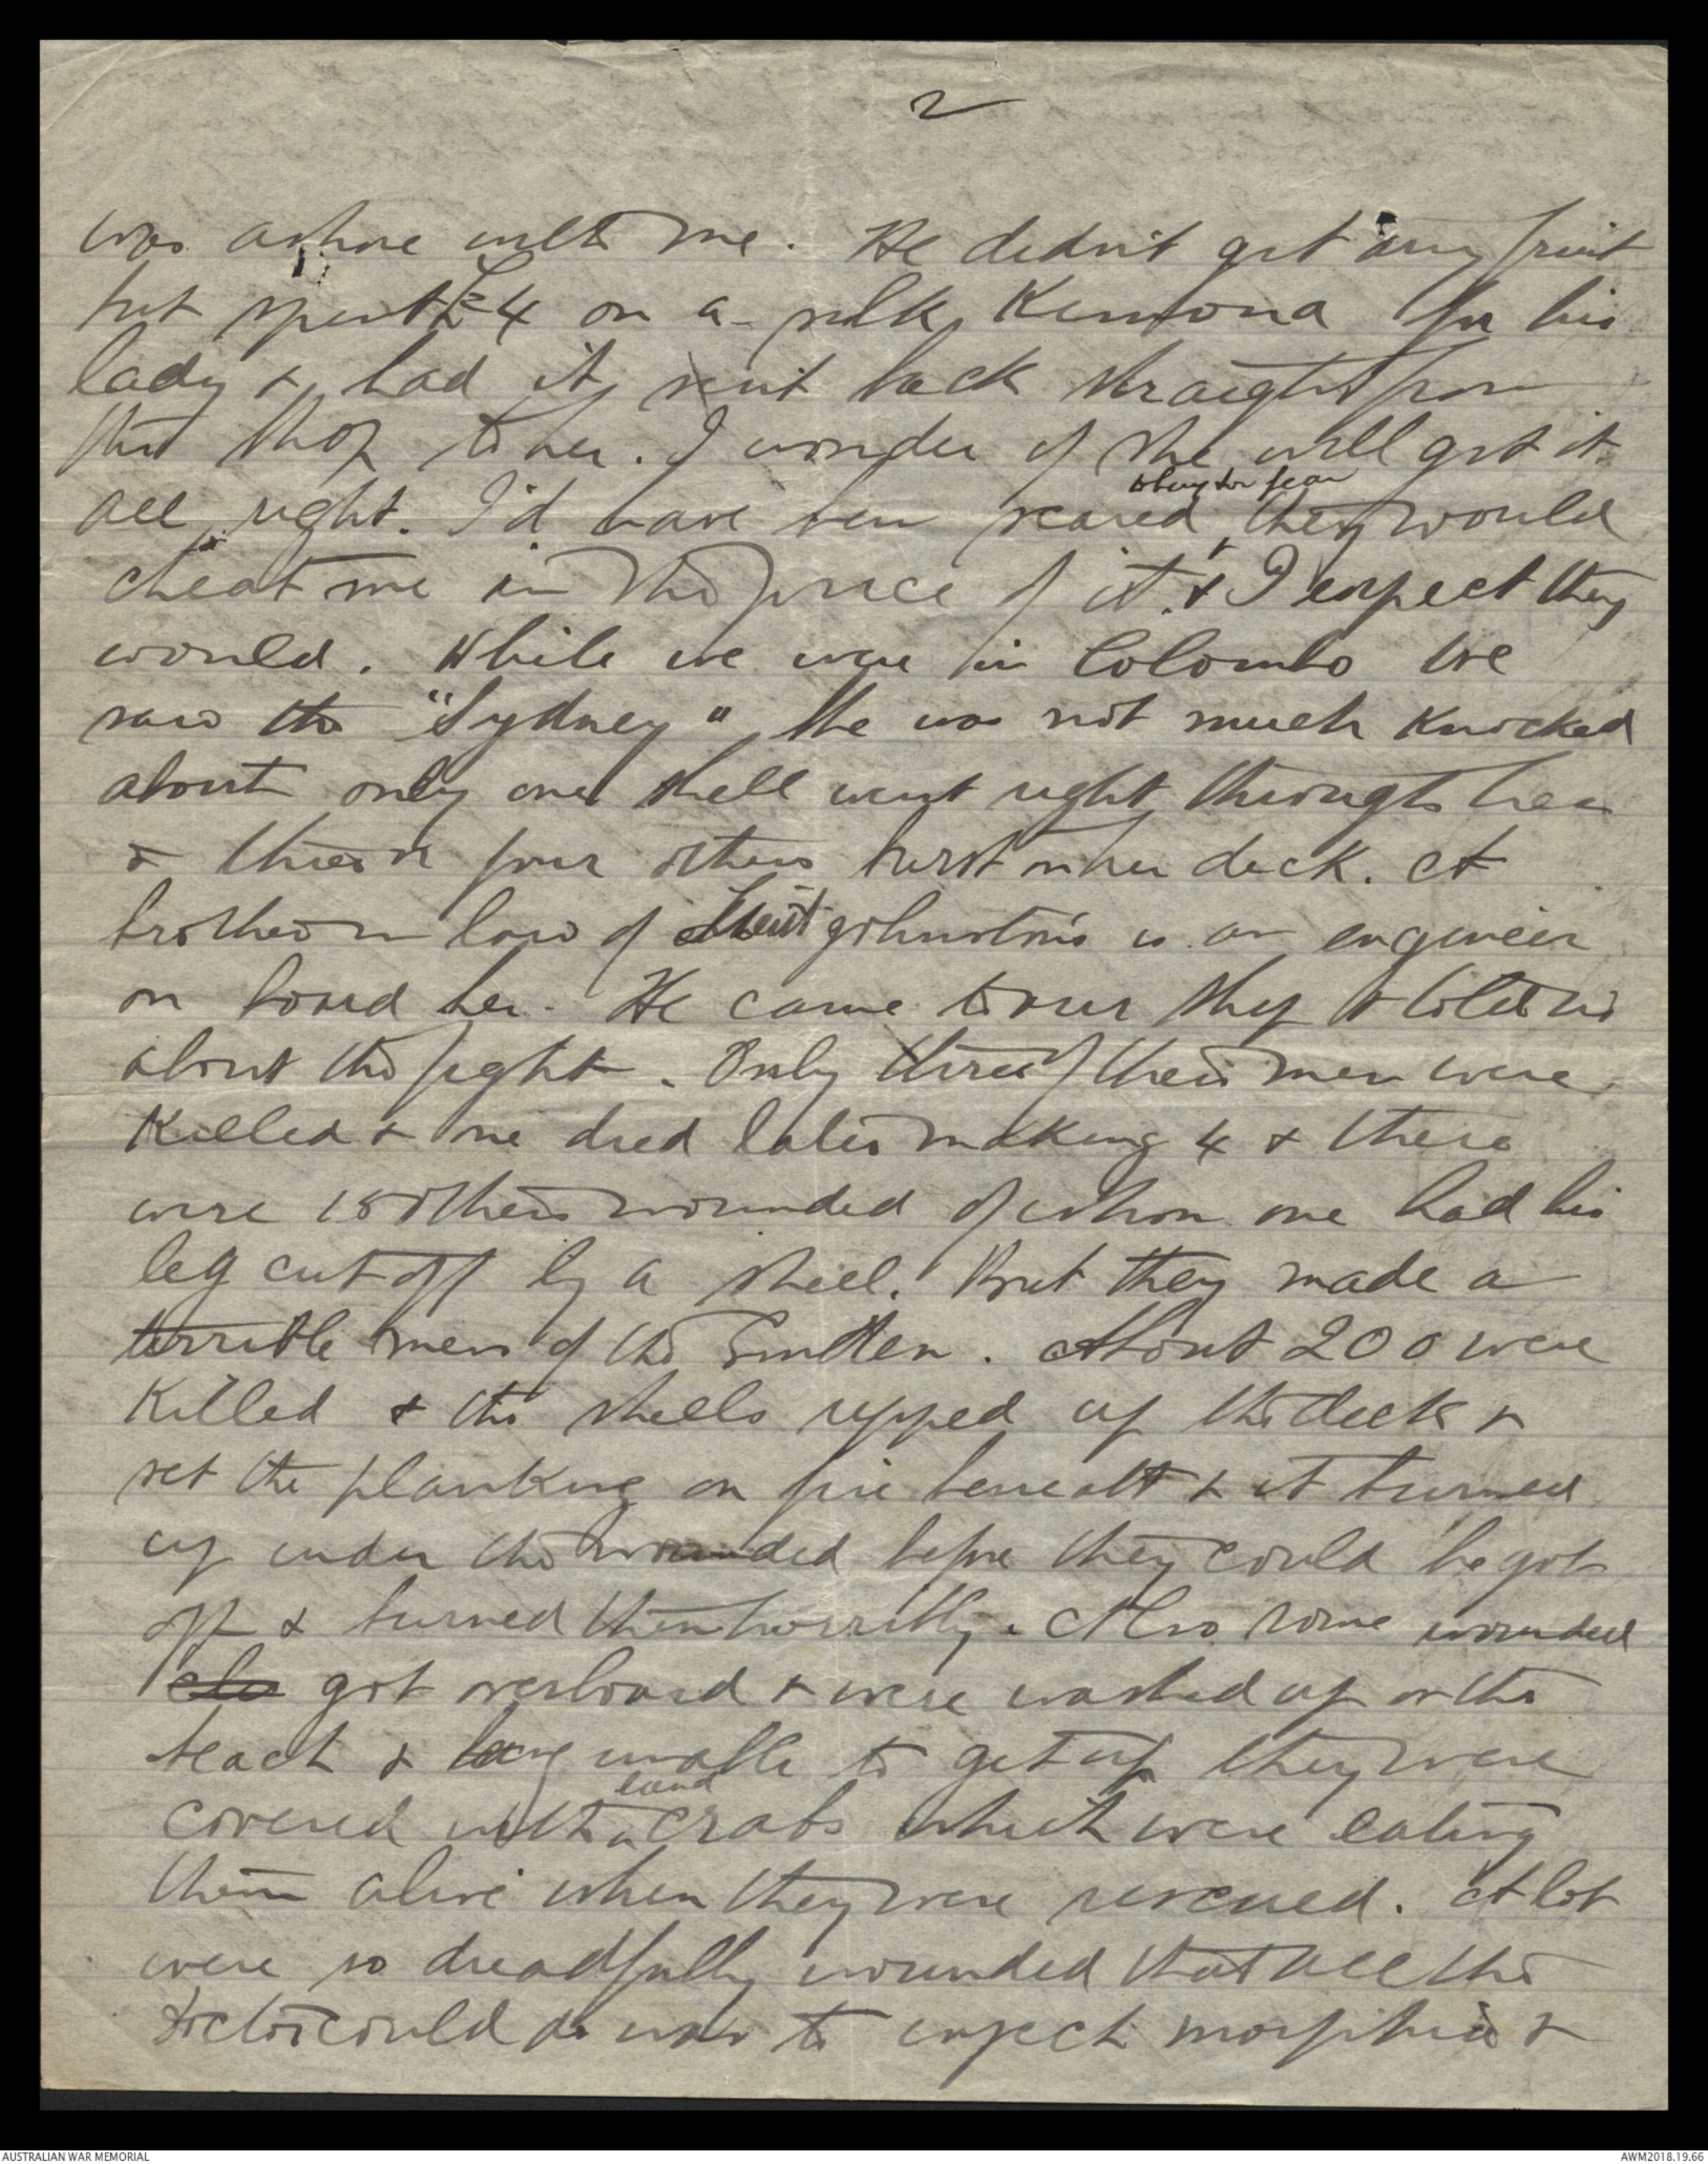 2
was ashore with me. He didn't get any fruit
but spent £4 on a silk Kimona for his
lady & had it sent back straight from
the shop to her. I wonder if she will get it
to buy for fear
all right. I'd have been scared they would
cheat me in the price of it. & I expect they
would. While we were in Colombo we
saw the "Sydney" she was not much knocked
about only one shell went right through her
& three or four others burst on her deck. A
brother in law of Lieut Johnston's is an engineer
on board her. He came to our ship & told us
about the fight. Only three of their men were
killed & one died later making 4 & there
were 18 others wounded of whom one had his
leg cut off by a shell. But they made a
terrible mess of the Emden. About 200 were
killed & the shells ripped up the deck &
set the planking on fire beneath & it burned
up under the wounded before they could be got
off & burned them horribly. Also some wounded
got overboard & were washed up on the
beach & being unable to get up they were
land
covered with crabs which were eating
them alive when they were rescued. A lot
were so dreadfully wounded that all the
doctor could do was to inject morphia &
AUSTRALIAN WAR MEMORIAL
AWM2018.19.66